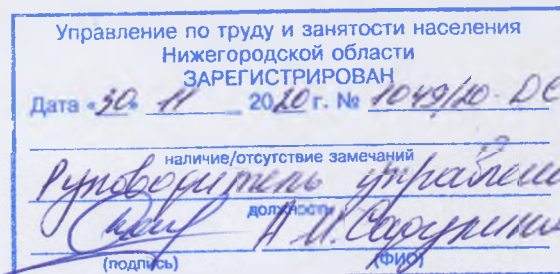 Управление по труду и занятости населения
Нижегородской области
ЗАРЕГИСТРИРОВАН
Дата «30» 11 2020 г. № 1049/20-
наличие/отсутствие замечаний
Руководитель
должность
А.И.
(подпись) (ФИО)